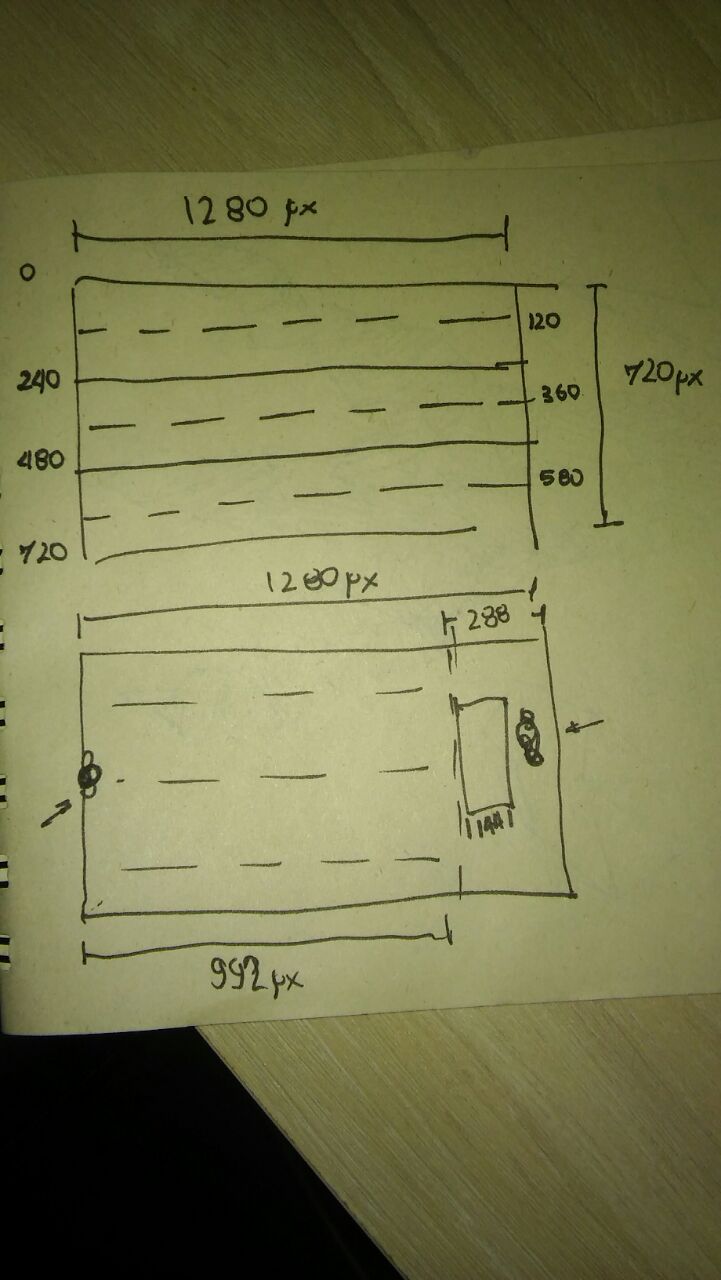 1280 px
0
120
240
720px
360
480
580
720
1280px
288
144
992px